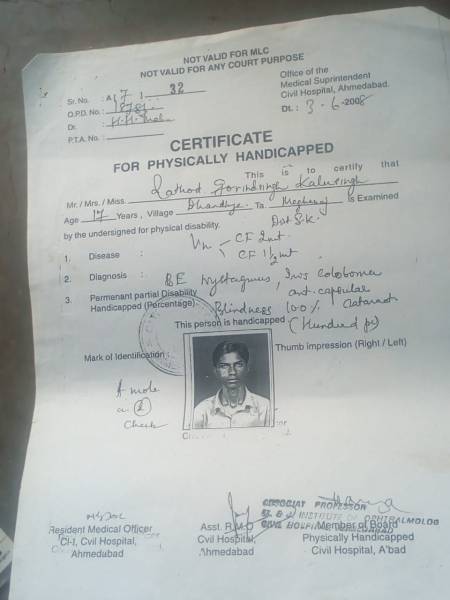 NOT VALID FOR MLC
NOT VALID FOR ANY COURT PURPOSE
Sr. No. : A 17 1 32
O.P.D. No. : 8781
Dr. : H.H.
P.T.A. No. :
Office of the
Medical Suprintendent
Civil Hospital, Ahmedabad.
Dt. : 3 - 6 -2008
CERTIFICATE
FOR PHYSICALLY HANDICAPPED
This is to certify that
Mr. / Mrs. / Miss. Rathod Govindsingh Kalusingh
Age 17 Years, Village Ta. Meghraj is Examined
by the undersigned for physical disability. Dist S.K.
1. Disease : Vn CF 2mt
CF 1½ mt
2. Diagnosis : BE nystagmus, Iris Coloboma
ant. capsular
Cataract
3. Permenant partial Disability
Handicapped (Percentage) Blindness 100%
This person is handicapped (Hundred pc)
Mark of Identification : Thumb impression (Right / Left)
A mole
on (L)
Cheek
Resident Medical Officer
Cl-I, Cvil Hospital,
Ahmedabad
Asst. R.M.O
Cvil Hospital,
Ahmedabad
ASSOCIAT PROFESSOR
INSTITUTE OF OPHTHALMOLOG
CIVIL HOSPITAL
Member of Board
Physically Handicapped
Civil Hospital, A'bad